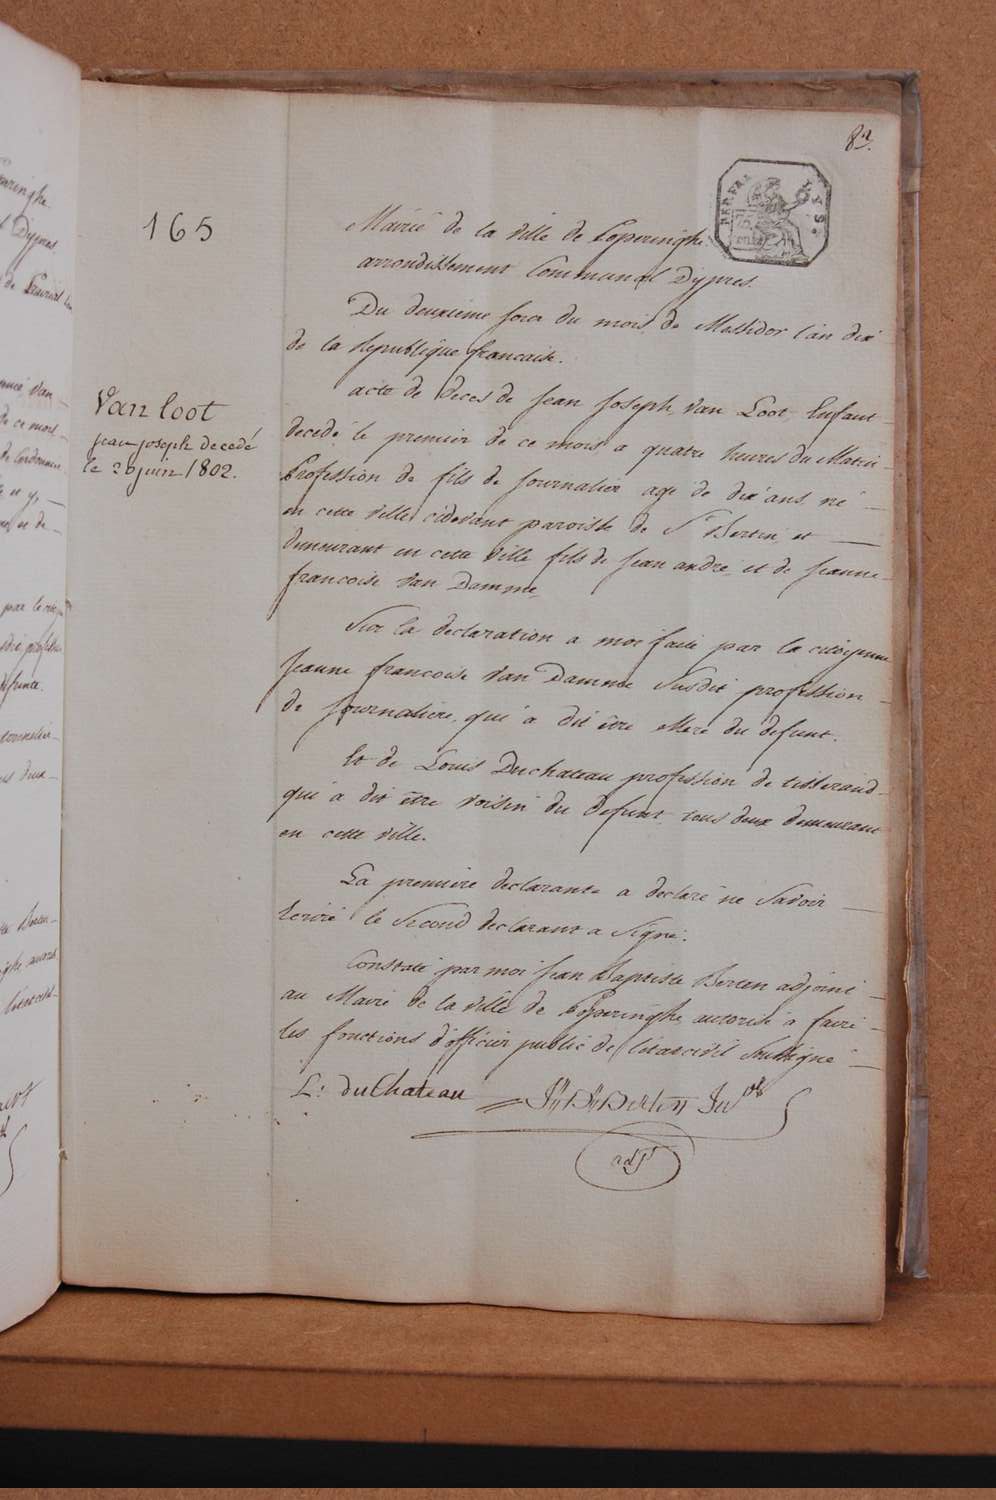 82.
REP. FRA
LYS.
165
Mairie de la ville de Poperinghe
arrondissement Communal Dypres.
Du deuxieme jour du mois de Messidor l'an dix
de la Republique francaise.
acte de Deces de Jean Joseph Van Loot, Enfant
Van loot
jean joseph decedé
le 20 juin 1802.
decedé le premier de ce mois a quatre heures du Matin
Profession de fils de Journalier agé de dix ans, né
en cette ville cidevant paroisse de St Bertin, et
demeurant en cette Ville fils de Jean andre et de Jeanne
francoise Van Damme
Sur la declaration a moi faite par la citoyenne
Jeanne francoise Van Damme Susdit profession
de Journaliere, qui a dit être Mere du defunt.
Et de Louis Duchateau profession de tisserand
qui a dit être voisin du defunt tous deux demeurant
en cette ville.
La premiere declarante a declaré ne Savoir
Ecrire le Second declarant a Signé.
Constaté par moi Jean Baptiste Berten adjoint
au Maire de la ville de Poperinghe autorisé a faire
les fonctions d'officier public de l'état civil Soussigné
L: duChateau J: B: Berten
adjt